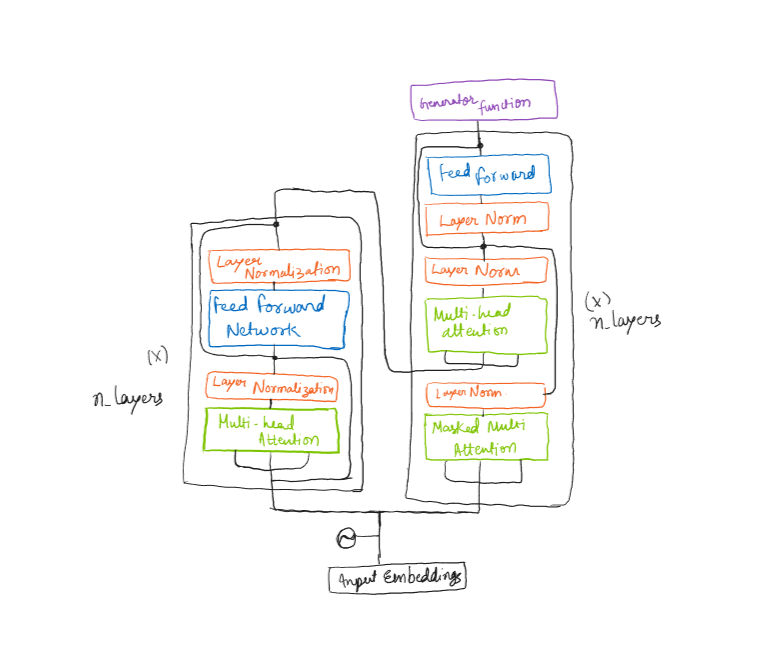 Generator function
Feed forward
Layer Norm
Layer Norm
Multi-head
attention
Layer Norm
Masked Multi
Attention
(x)
n_layers
Layer
Normalization
Feed Forward
Network
Layer Normalization
Multi-head
Attention
(x)
n_layers
Input Embeddings